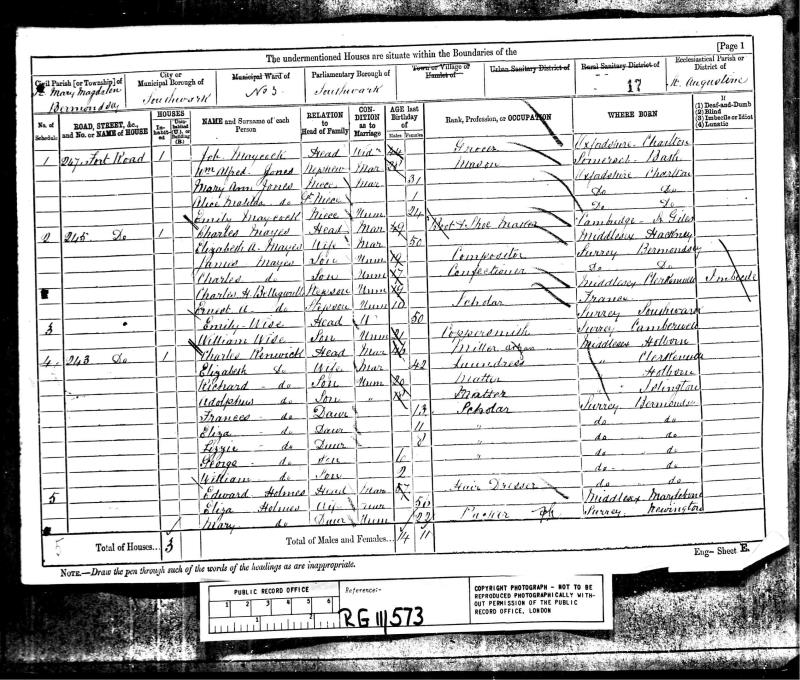 [Page 1
The undermentioned Houses are situate within the Boundaries of the
Civil Parish [or Township] of
St Mary Magdalen
Bermondsey
City or
Municipal Borough of
Southwark
Municipal Ward of
No 3
Parliamentary Borough of
Southwark
Town or Village of
Hamlet of
Urban Sanitary District of
Rural Sanitary District of
17
Ecclesiastical Parish or
District of
St Augustine
No. of
Schedule
ROAD, STREET, &c.,
and No. or NAME of HOUSE
HOUSES
NAME and Surname of each
Person
RELATION
to
Head of Family
CON-
DITION
as to
Marriage
AGE last
Birthday
of
Males Females
Rank, Profession, or OCCUPATION
WHERE BORN
If
(1) Deaf-and-Dumb
(2) Blind
(3) Imbecile or Idiot
(4) Lunatic
1 247 Fort Road 1 Job Maycock Head Widr Grocer Oxfordshire Charlton
Wm Alfred Jones Nephew Mar Mason Somerset Bath
Mary Ann Jones Niece Mar 31 Oxfordshire Charlton
Alice Matilda do Gt Niece 1 Do Do
Emily Maycock Niece Unm 24 Do Do
2 245 Do 1 Charles Mayes Head Mar 49 Boot & Shoe Maker Cambridge St Giles
Elizabeth A. Mayes Wife Mar 50 Middlesex Hackney
James Mayes Son Unm 19 Compositor Surrey Bermondsey
Charles do Son Unm 17 Confectioner Do Do
Charles H. Stepson Unm 19 Middlesex Clerkenwell Imbecile
Ernest A do Stepson Unm 10 Scholar France
3 Emily Wise Head W 50 Surrey Southwark
William Wise Son Unm 21 Coppersmith Surrey Camberwell
4 243 Do 1 Charles Renwick Head Mar 46 Middlesex Holborn
Elizabeth Do Wife Mar 42 Laundress " Clerkenwell
Richard do Son Unm 20 Matter " Holborn
Adolphus do Son " Matter " Islington
Frances do Daur 13 Scholar Surrey Bermondsey
Eliza do Daur 11 " do do
Lizzie do Daur 8 " do do
George do Son 6 " do do
William do Son 2 do do
5 Edward Holmes Head Mar 57 Hair Dresser Middlesex Marylebone
Eliza Holmes Wife Mar 50
Mary do Daur Unm 22 Packer Surrey Newington
5 Total of Houses... 3
Total of Males and Females... 14 11
Eng— Sheet E.
NOTE.—Draw the pen through such of the words of the headings as are inappropriate.
PUBLIC RECORD OFFICE
1 2 3 4 5 6
1 2
Reference:-
RG 11/573
COPYRIGHT PHOTOGRAPH - NOT TO BE
REPRODUCED PHOTOGRAPHICALLY WITH-
OUT PERMISSION OF THE PUBLIC
RECORD OFFICE, LONDON